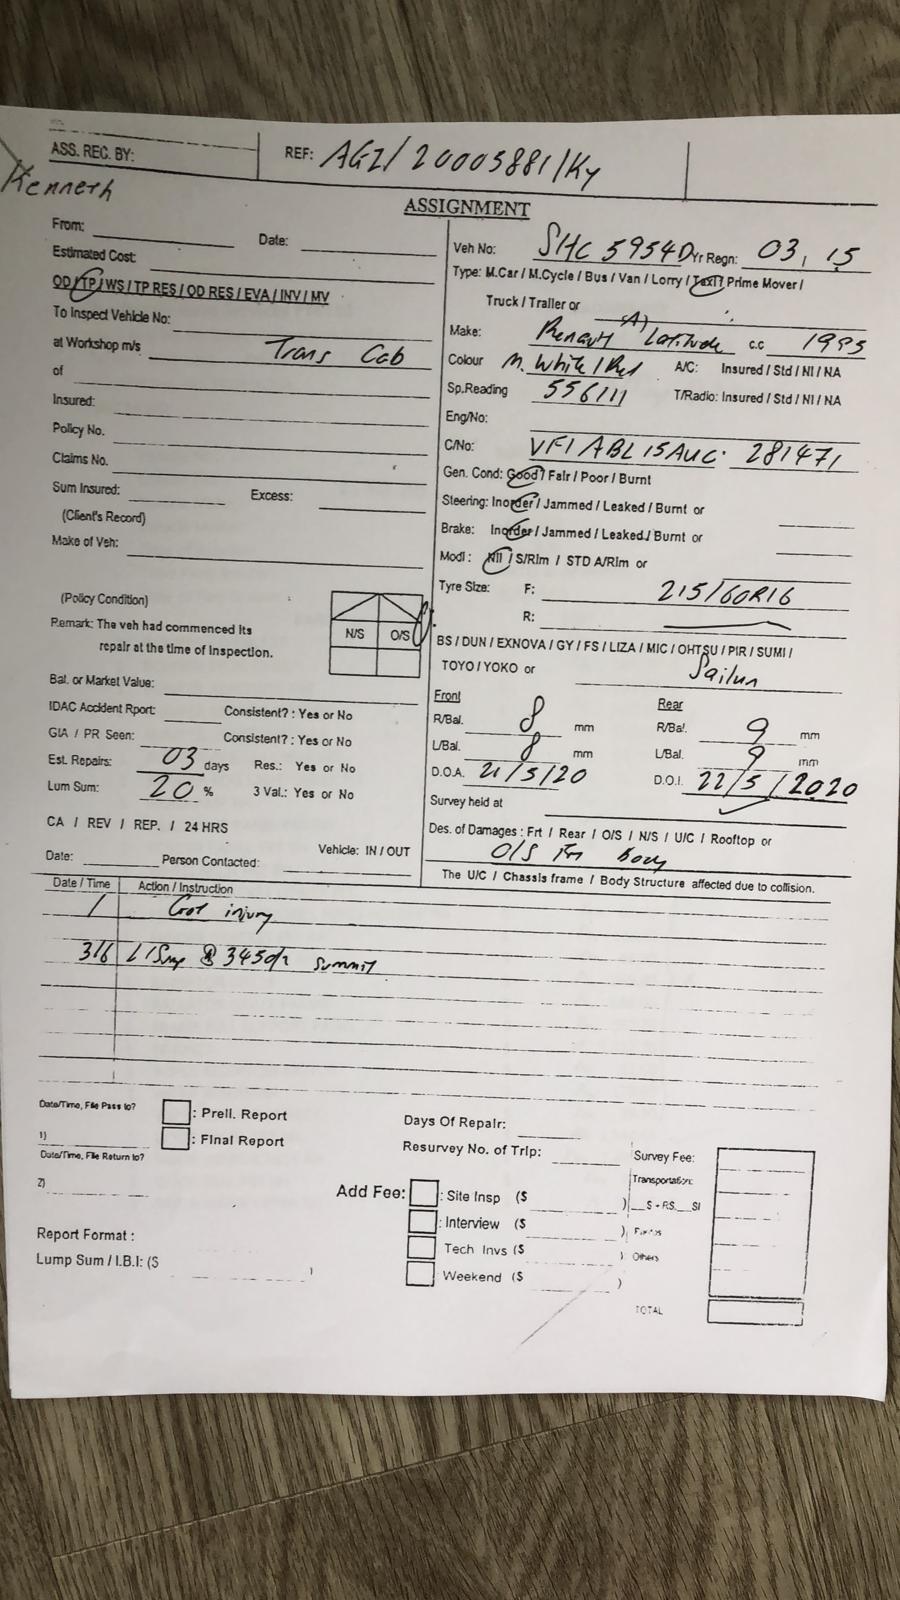 ASS. REC. BY:
Kenneth
REF: AGI/20005881/Ky
ASSIGNMENT
From: Date:
Estimated Cost:
OD / TP / WS / TP RES / OD RES / EVA / INV / MV
To Inspect Vehicle No:
at Workshop m/s Trans Cab
of
Insured:
Policy No.
Claims No.
Sum Insured: Excess:
(Client's Record)
Make of Veh:
(Policy Condition)
Remark: The veh had commenced its
repair at the time of Inspection.
N/S O/S
Bal. or Market Value:
IDAC Accident Rport: Consistent? : Yes or No
GIA / PR Seen: Consistent? : Yes or No
Est. Repairs: 03 days Res.: Yes or No
Lum Sum: 20 % 3 Val.: Yes or No
CA / REV / REP. / 24 HRS
Vehicle: IN / OUT
Date: Person Contacted:
Veh No: SHC 5954D Yr Regn: 03, 15
Type: M.Car / M.Cycle / Bus / Van / Lorry / Taxi / Prime Mover /
Truck / Trailer or
(A)
Make: Renault Latitude c.c 1995
Colour M. White / Red A/C: Insured / Std / NI / NA
Sp.Reading 556111 T/Radio: Insured / Std / NI / NA
Eng/No:
C/No: VF1ABL15AUC 281471
Gen. Cond: Good / Fair / Poor / Burnt
Steering: Inorder / Jammed / Leaked / Burnt or
Brake: Inorder / Jammed / Leaked / Burnt or
Modi : Nil / S/Rim / STD A/Rim or
Tyre Size: F: 215/60R16
R:
BS / DUN / EXNOVA / GY / FS / LIZA / MIC / OHTSU / PIR / SUMI /
TOYO / YOKO or Sailun
Front Rear
R/Bal. 8 mm R/Bal. 9 mm
L/Bal. 8 mm L/Bal. 9 mm
D.O.A. 21/5/20 D.O.I. 22/5/2020
Survey held at
Des. of Damages : Frt / Rear / O/S / N/S / U/C / Rooftop or
O/S Frt body
The U/C / Chassis frame / Body Structure affected due to collision.
Date / Time Action / Instruction
/ injury
3/6 @ 345 summit
Date/Time, File Pass to?
: Preli. Report
1)
: Final Report
Date/Time, File Return to?
2)
Report Format :
Lump Sum / I.B.I: ($ )
Days Of Repair:
Resurvey No. of Trip:
Add Fee: : Site Insp ($ )
: Interview ($ )
Tech Invs ($ )
Weekend ($ )
Survey Fee:
Transportation:
S + RS. SI
Others
TOTAL